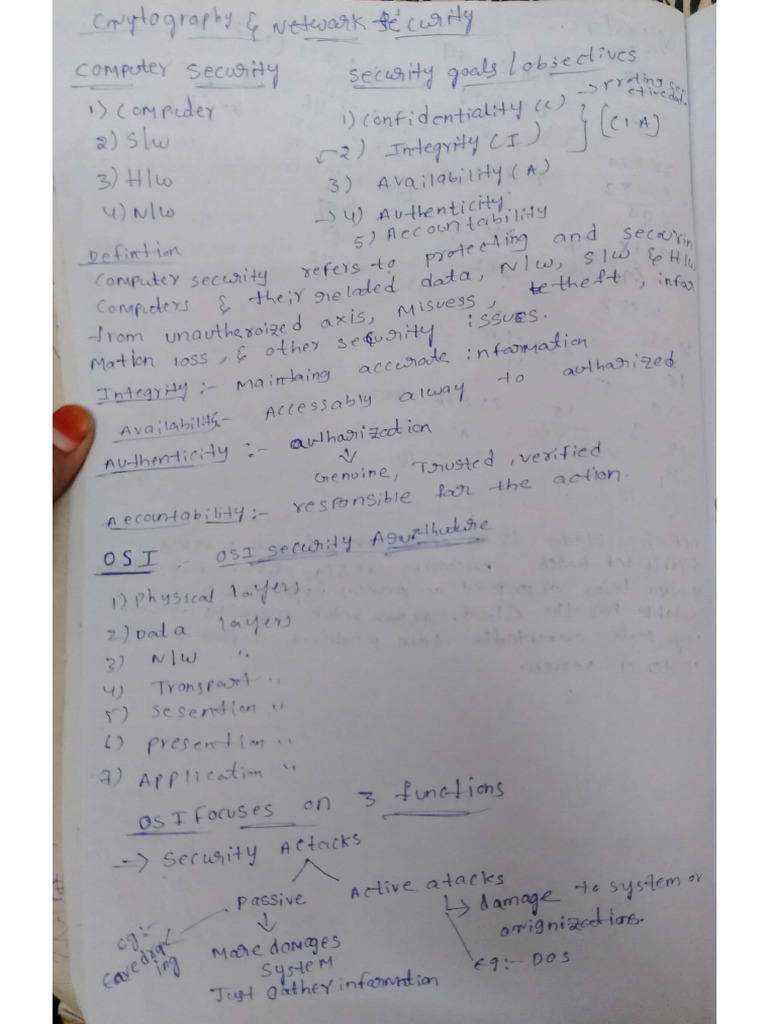 Crytography & Network Security
Computer Security
Security goals / objectives
1) Computer
2) S/w
3) H/w
4) N/w
1) Confidentiality (C) →
2) Integrity (I)
(CIA)
3) Availability (A)
→ 4) Authenticity
5) Accountability
Defintion
Computer security refers to protecting and securin
Computers & their related data, N/w, S/w & H/w
from unautheroized axis, Misuess, theft, infor
Mation loss, & other security issues.
Integrity :- Maintaing accurate information
Availability- Accessably alway to autharized
Authenticity :- autharization
↓
Genuine, Trusted, verified
Accountability :- responsible for the action.
OSI - OSI security
1) Physical layers
2) Data layers
3) N/w "
4) Transpart "
5) sesention "
6) presention "
7) Application "
OSI Focuses on 3 functions
→ Security Attacks
Passive
Active atacks
↳ damage to system or
orignizations.
eg:- DOS
eg:-
↓
More damages
System
Just Gather information